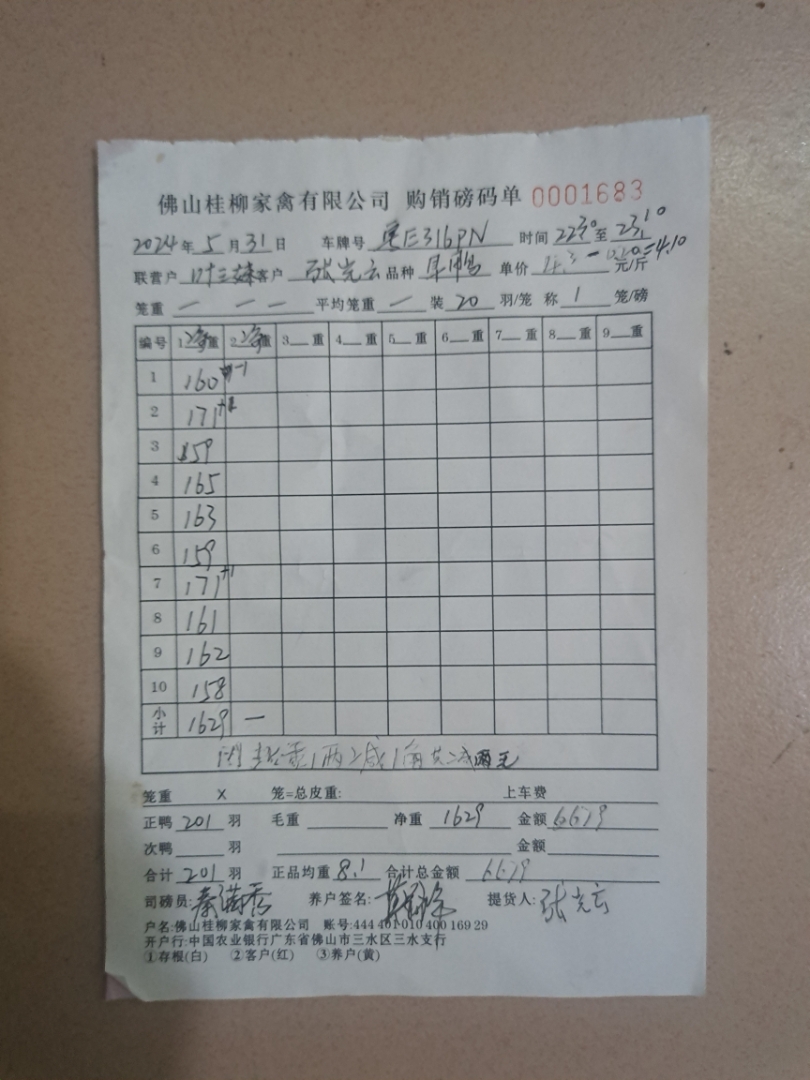 佛山桂柳家禽有限公司 购销磅码单 0001683
2024年 5月31日 车牌号 E316PN 时间 22:30至23:10
联营户 叶三妹 客户 张光云 品种 单价 4.3-0.20=4.10 元/斤
笼重 — — — 平均笼重 — 装 20 羽/笼 称 1 笼/磅
编号 1净重 2净重 3__重 4__重 5__重 6__重 7__重 8__重 9__重
1 160 -1
2 171 +1
3 159
4 165
5 163
6 159
7 171 +1
8 161
9 162
10 158
小计 1629 —
笼重 X 笼=总皮重: 上车费
正鸭 201 羽 毛重 净重 1629 金额 6679
次鸭 羽 金额
合计 201 羽 正品均重 8.1 合计总金额 6679
司磅员: 养户签名: 提货人: 张光云
户名:佛山桂柳家禽有限公司 账号:444 401 010 400 169 29
开户行:中国农业银行广东省佛山市三水区三水支行
①存根(白) ②客户(红) ③养户(黄)